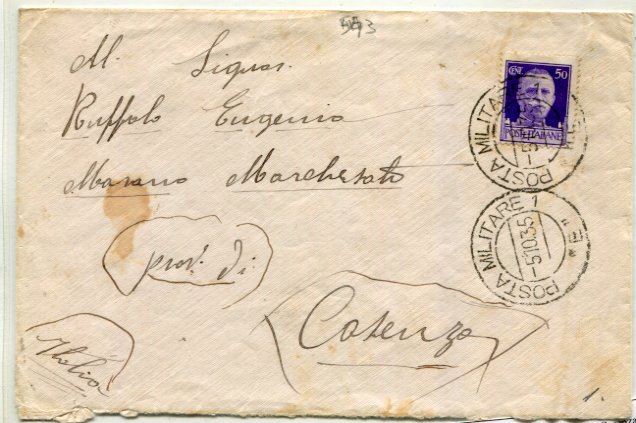 Al Signor.
CENT. 50
Ruffolo Eugenio
POSTE ITALIANE
POSTA MILITARE 1
Marano Marchesato
POSTA MILITARE 1
-5.10.35
"E"
prov. di
Cosenza
Italia
1.